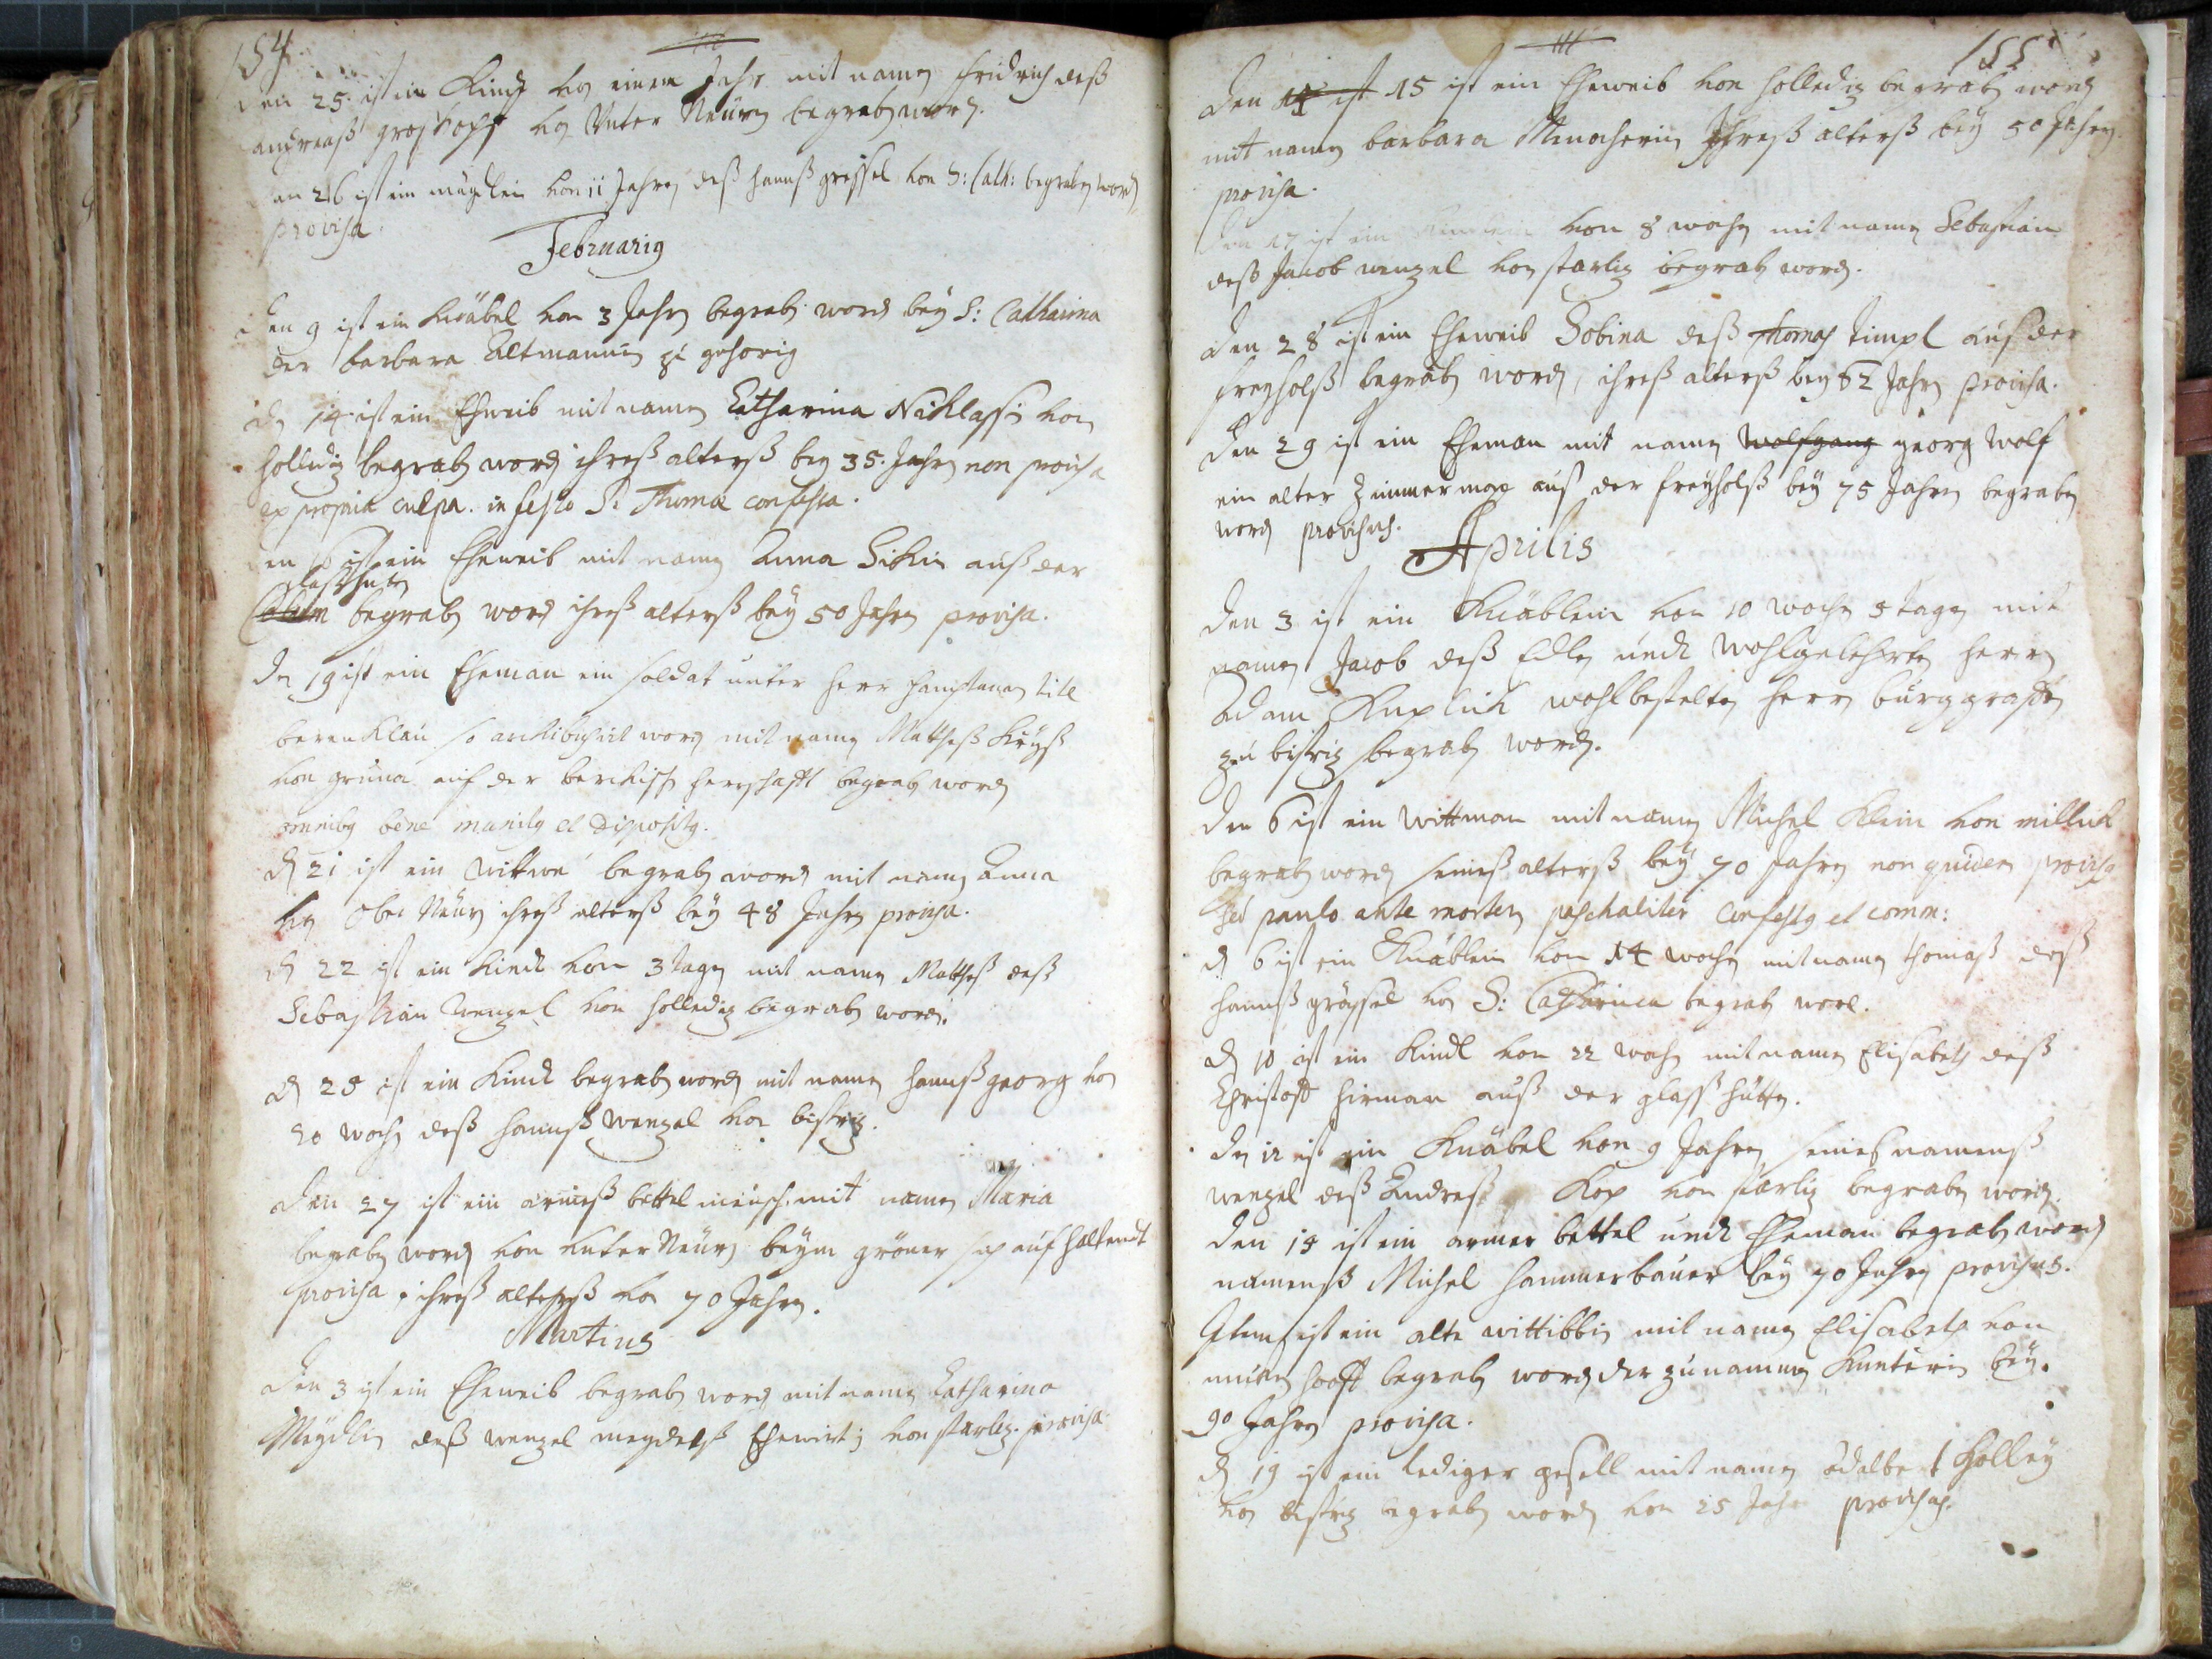 154
den 25. ist ein Kind von einem Jahr mit namen Fridrich deß
andreaß großkopf von Unter Neurn begraben word.
den 26 ist ein mägdlein von 11 Jahren deß hannß gressel von S: Cath: begraben word
provisa.
Februarig
den 9 ist ein knäbel von 3 Jahrn begraben word bey S: Catharina
der barbara Altmannin zu gehorig
den 14 ist ein Eheweib mit namen Catharina Niklassin von
holledig begraben word ihreß alterß bey 35. Jahrn non provisa
ex propria culpa. in festo S. Thomæ confessa.
den ist ein Eheweib mit namen Anna Sikin auß der
glaßhütn
begraben word ihreß alterß bey 50 Jahrn provisa.
den 19 ist ein Eheman ein soldat unter herr hauptman
berenklau so word mit namen Matheß
von gruna auf der herrschafft begraben word
omnibg bene munitg et dispositg.
d 21 ist ein wittwe begraben word mit namen Anna
von Ober Neurn ihreß alterß bey 48 Jahrn provisa.
d 22 ist ein kind von 3 tagen mit namen Matheß deß
Sebastian wenzel von holledig begraben word.
d 25 ist ein Kind begraben word mit namen hannß georg von
20 wochn deß hannß wenzel von bistriz.
den 27 ist ein armeß bettel mensch mit namen Maria
begraben word von unter Neurn beym gröner sich aufhaltendt
provisa, ihreß alterß von 70 Jahrn.
Martius
den 3 ist ein Eheweib begraben word mit namen Catharina
Meydlin deß wenzel meydelß Ehewirtin von starliz. provisa
155
den 14 ist 15 ist ein Eheweib von holledig begraben word
mit namen barbara Ihreß alterß bey 50 Jahrn
provisa.
den 17 ist ein von 8 wochn mit namen Sebastian
deß Jacob wenzel von starliz begraben word.
den 28 ist ein Eheweib Sobina deß Thomas timpl auß der
freyholß begraben word, ihreß alterß bey 52 Jahrn provisa.
den 29 ist ein Eheman mit namen Wolfgang georg Wolf
ein alter Zimmerman auß der freyholß bey 75 Jahrn begraben
word provisus.
Aprilis
den 3 ist ein Knäblein von 10 wochn 5 tagen mit
namen Jacob deß Edlen undt Wohlgelehrten herrn
Adam Kaplick wohlbestelten herrn burggrafen
zu bistriz begraben word.
den 6 ist ein Wittman mit namen Michel Klein von millick
begraben word seineß alterß bey 70 Jahrn non quidem provisg
sed paulo ante mortem paschaliter confessg et comm:
d 6 ist ein Knäblein von 14 wochn mit namen thomaß deß
hannß grössel von S: Catharina begraben word.
d 10 ist ein Kindl von 22 wochn mit namen Elisabeth deß
Christoff hirman auß der glaßhütte.
den 12 ist ein Knäbel von 9 Jahrn seines namenß
wenzel deß Andreß Kop von starliz begraben word.
den 15 ist ein armer bettel und Eheman begraben word
namenß Michel hammerbauer bey 70 Jahrn provisus.
Item ist ein alte wittibbin mit namen Elisabeth von
begraben word der zunamen bey
90 Jahrn provisa.
d 19 ist ein lediger gesell mit namen adalbert holley
von bistriz begraben word von 25 Jahr provisus.